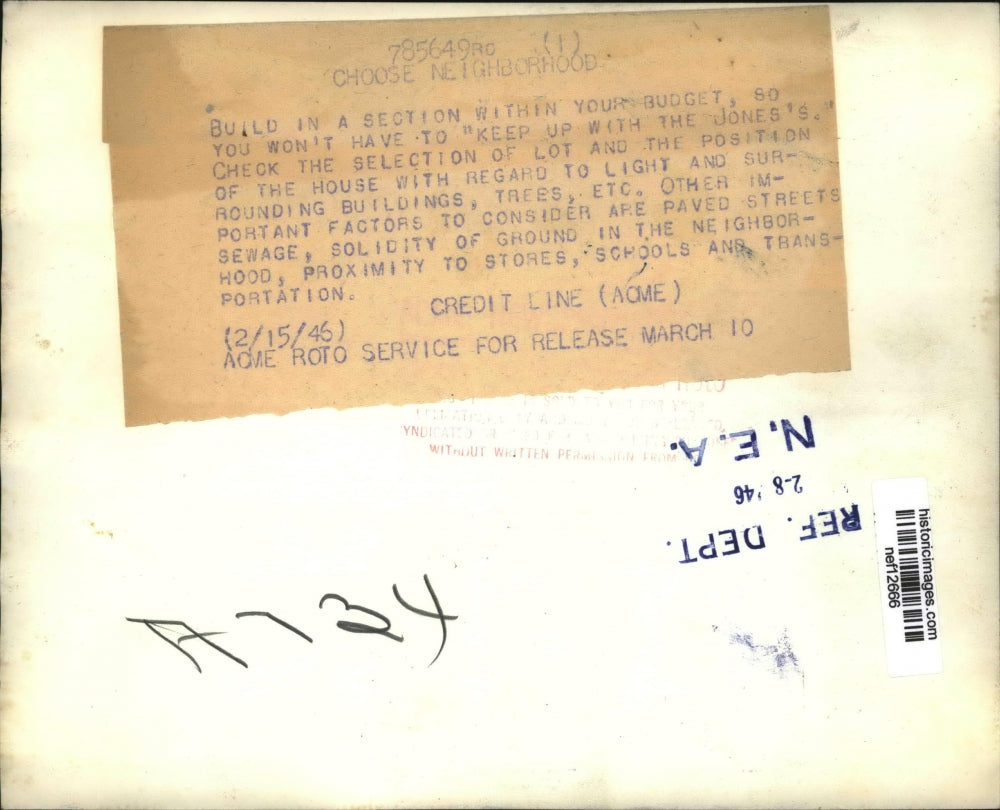 785649RO (1)
CHOOSE NEIGHBORHOOD
BUILD IN A SECTION WITHIN YOUR BUDGET, SO
YOU WON'T HAVE TO "KEEP UP WITH THE JONES'S."
CHECK THE SELECTION OF LOT AND THE POSITION
OF THE HOUSE WITH REGARD TO LIGHT AND SUR-
ROUNDING BUILDINGS, TREES, ETC. OTHER IM-
PORTANT FACTORS TO CONSIDER ARE PAVED STREETS
SEWAGE, SOLIDITY OF GROUND IN THE NEIGHBOR-
HOOD, PROXIMITY TO STORES, SCHOOLS AND TRANS-
PORTATION.
CREDIT LINE (ACME)
(2/15/46)
ACME ROTO SERVICE FOR RELEASE MARCH 10
IS SOLD TO YOU FOR YOUR
WITHOUT WRITTEN PERMISSION FROM
N.E.A.
2-8 '46
REF. DEPT.
historicimages.com
nef12666
A-134